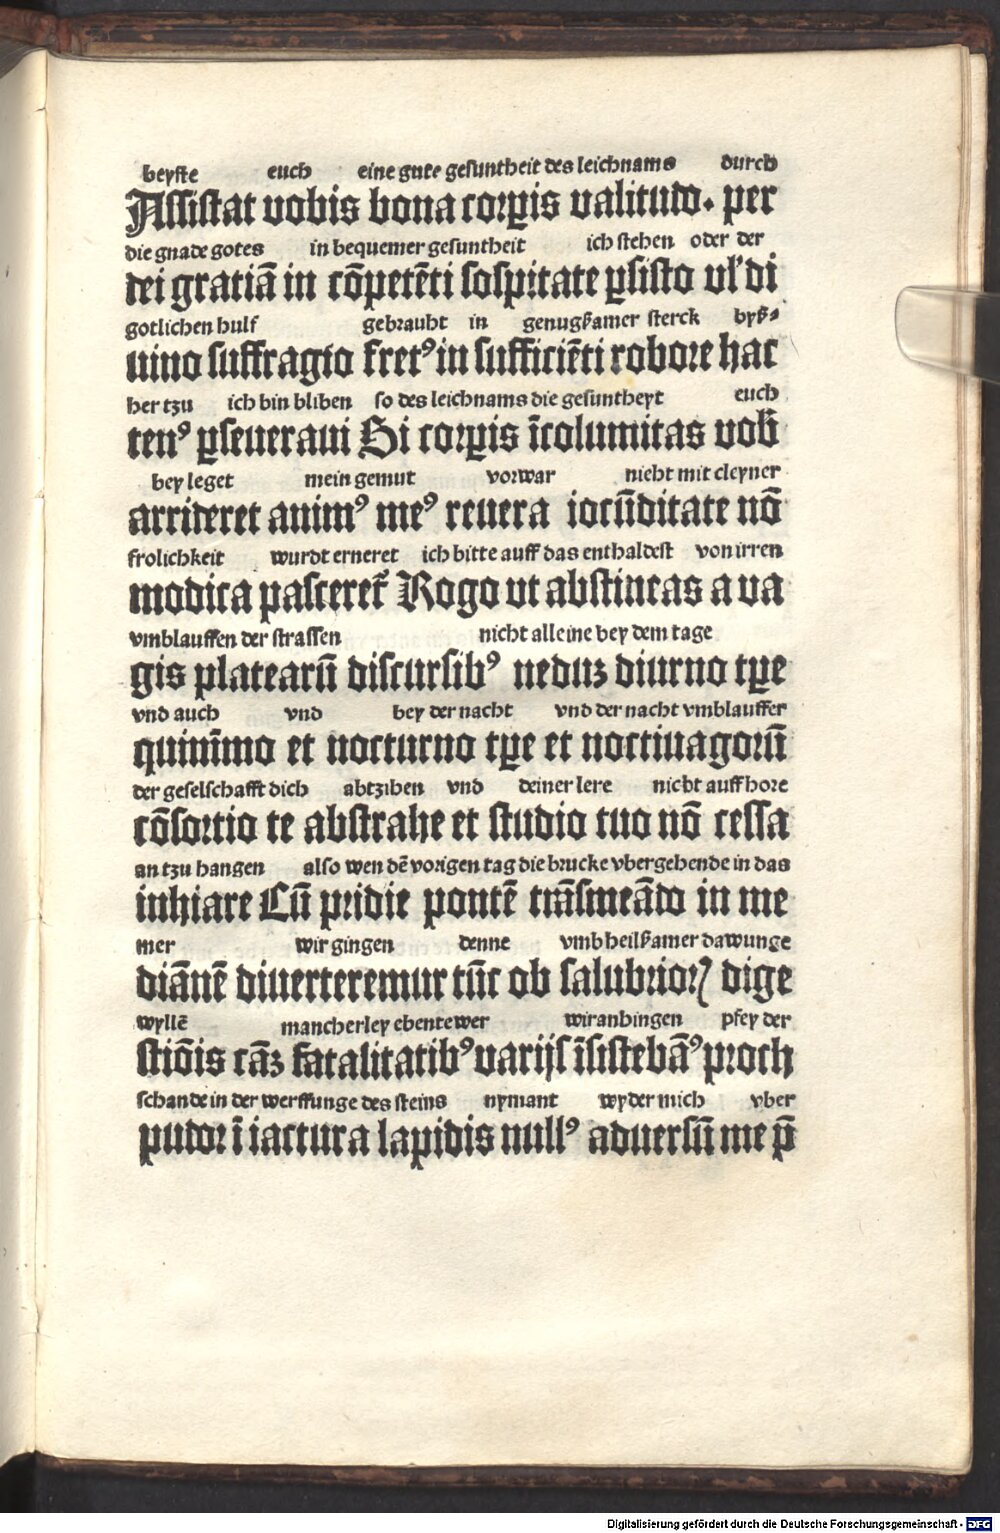 beyste euch eine gute gesuntheit des leichnams durch
Assistat vobis bona corꝑis valitudo. per
die gnade gotes in bequemer gesuntheit ich stehen oder der
dei gratiā in cōpetēti sospitate ꝑsisto vl' di
gotlichen hulf gebraubt in genugßamer sterck byß⸗
uino suffragio fretꝰ in sufficiēti robore hac
her tzu ich bin bliben so des leichnams die gesuntheyt euch
tenꝰ ꝑseueraui Si corꝑis īcolumitas vob̄
bey leget mein gemut vorwar nicht mit cleyner
arrideret animꝰ meꝰ reuera iocūditate nō
frolichkeit wurdt erneret ich bitte auff das enthaldest von irren
modica pasceret᷑ Rogo vt abstineas a va
vmblauffen der strassen nicht alleine bey dem tage
gis platearū discursibꝰ neduꝫ diurno tꝑe
vnd auch vnd bey der nacht vnd der nacht vmblauffer
quinīmo et nocturno tꝑe et noctiuagorū
der geselschafft dich abtzihen vnd deiner lere nicht auff hore
cōsortio te abstrahe et studio tuo nō cessa
an tzu hangen also wen dē vorigen tag die brucke vbergehende in das
inhiare Cū pridie pontē trāsmeādo in me
mer wir gingen denne vmb heilßamer dawunge
diānē diuerteremur tūc ob salubrioꝝ dige
wyllē mancherley ebentewer wir anhingen pfey der
stiōis cāꝫ fatalitatibꝰ varijs īsistebāꝰ proch
schande in der werffunge des steins nymant wyder mich vber
pudor ī iactura lapidis nullꝰ aduersū me p̄
Digitalisierung gefördert durch die Deutsche Forschungsgemeinschaft - DFG